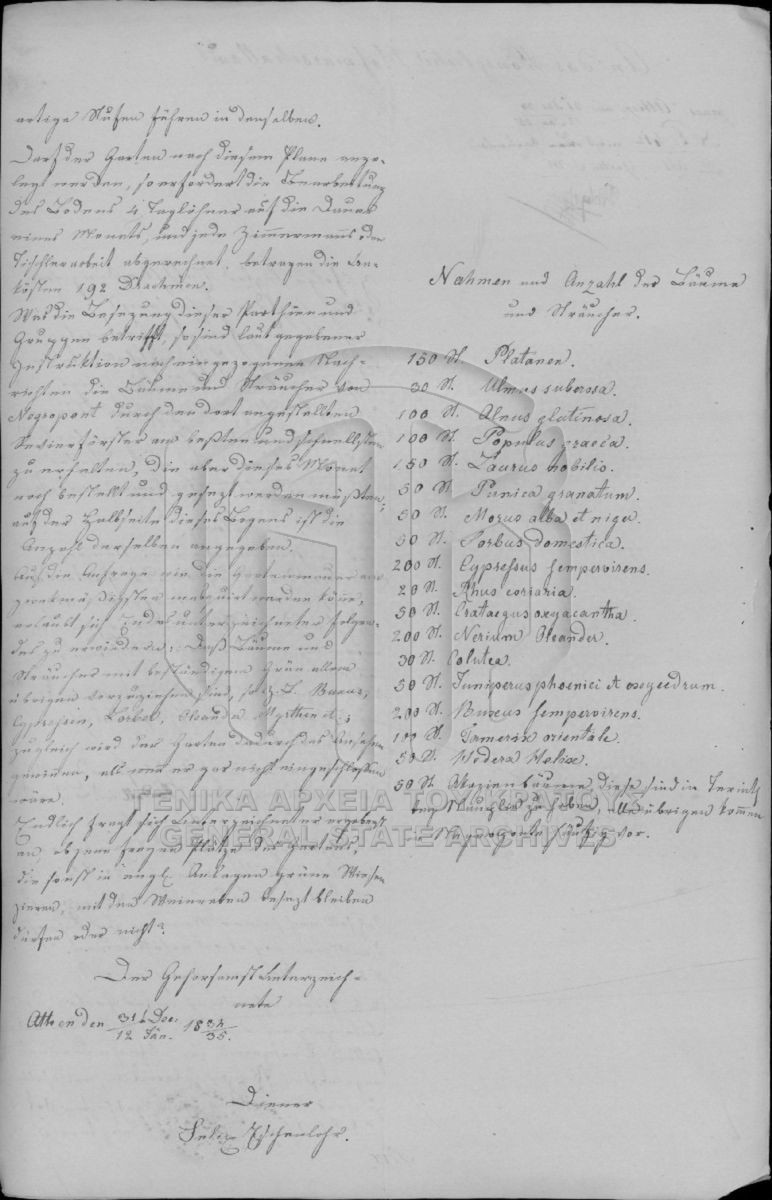 artige Stufen führen in denselben.
Darf der Garten nach diesem Plane ange-
legt werden, so erfordert die Bearbeitung
des Bodens 4 Taglöhner auf die Dauer
eines Monats, und jede Zimmermanns oder
Tischlerarbeit abgerechnet, betragen die Un-
kösten 192 Drachmen.
Was die Besezung dieser Parthien und
Gruppen betrifft, so sind laut gegebener
Instruktion nach eingezogenen Nach-
richten die Bäume und Sträucher von
Negropont durch den dort angestellten
Revierförster am beßten und schnellsten
zu erhalten, die aber dieses Monat
noch bestellt und gesezt werden müßten,
auf der Halbseite dieses Bogens ist die
Anzahl derselben angegeben.
Auf die Anfrage wie die Gartenmauer am
zwekmäßigsten maskirt werden könne,
erlaubt sich Endesunterzeichneter folgen-
des zu erwiedern: Daß Bäume und
Sträucher mit beständigem Grün allem
übrigen vorzuziehen sind, so z. B. Buxus,
Cypressen, Lorber, Oleander Myrthen et.;
zugleich wird der Garten dadurch das Ansehen
gewinnen, als wenn er gar nicht eingeschlossen
wäre.
Endlich fragt sich Unterzeichneter ergebenst
an, ob jene Plätze des Gartens,
die sonst in engl. Anlagen grüne Wiesen
zieren, mit den Weinreben besezt bleiben
dürfen oder nicht?
Der Gehorsamst Unterzeich-
nete
Athen den 31t Dec. / 12 Jän. 1834/35.
Diener
Felix Eschenlohr.
Nahmen und Anzahl der Bäume
und Sträucher.
150 St. Platanen.
30 St. Ulmus suberosa.
100 St. Alnus glutinosa.
100 St. Populus graeca.
150 St. Laurus nobilis.
50 St. Punica granatum.
50 St. Morus alba et niger.
50 St. Sorbus domestica.
200 St. Cypressus sempervirens.
20 St. Rhus coriaria.
50 St. Crataegus oxyacantha.
200 St. Nerium Oleander.
30 St. Colutea.
50 St. Juniperus phoenici et oxycedrum.
200 St. Buxus sempervirens.
100 St. Tamerix orientale.
50 St. Hedera Helix.
50 St. Akazienbäume, diese sind in
zu haben, alle übrigen kommen
in Negroponte häufig vor.
ΓΕΝΙΚΑ ΑΡΧΕΙΑ ΤΟΥ ΚΡΑΤΟΥΣ
GENERAL STATE ARCHIVES